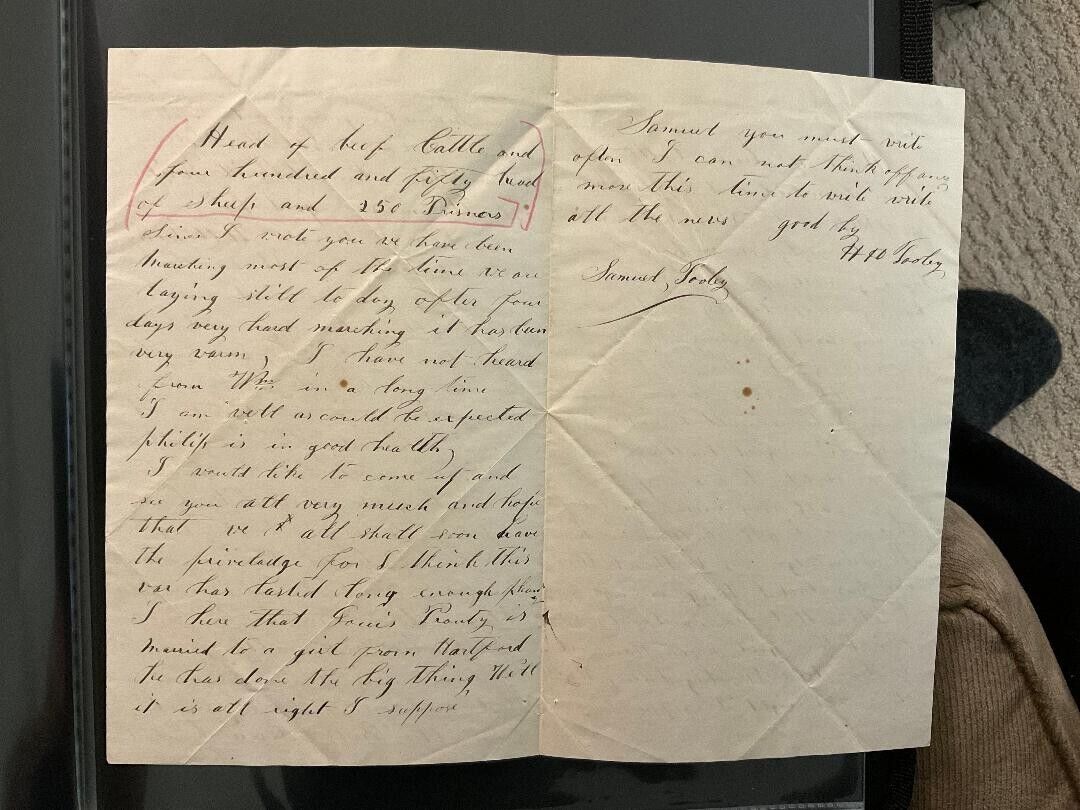 Head of beef Cattle and
four hundred and fifty head
of sheep and 250 Prisners
Since I wrote you we have been
Marching most of the time we are
laying still to day after four
days very hard marching it has been
very warm, I have not heard
from Wm in a long time
I am well as could be expected
philip is in good health,
I would like to come up and
see you all very much and hope
that we all shall soon have
the priveladge for I think this
war has lasted long enough
I here that Prouty is
Married to a girl from Hartford
he has done the big thing Well
it is all right I suppose
Samuel you must write
often I can not think off any
more this time to write write
all the news good by
Tooley
Samuel Tooley